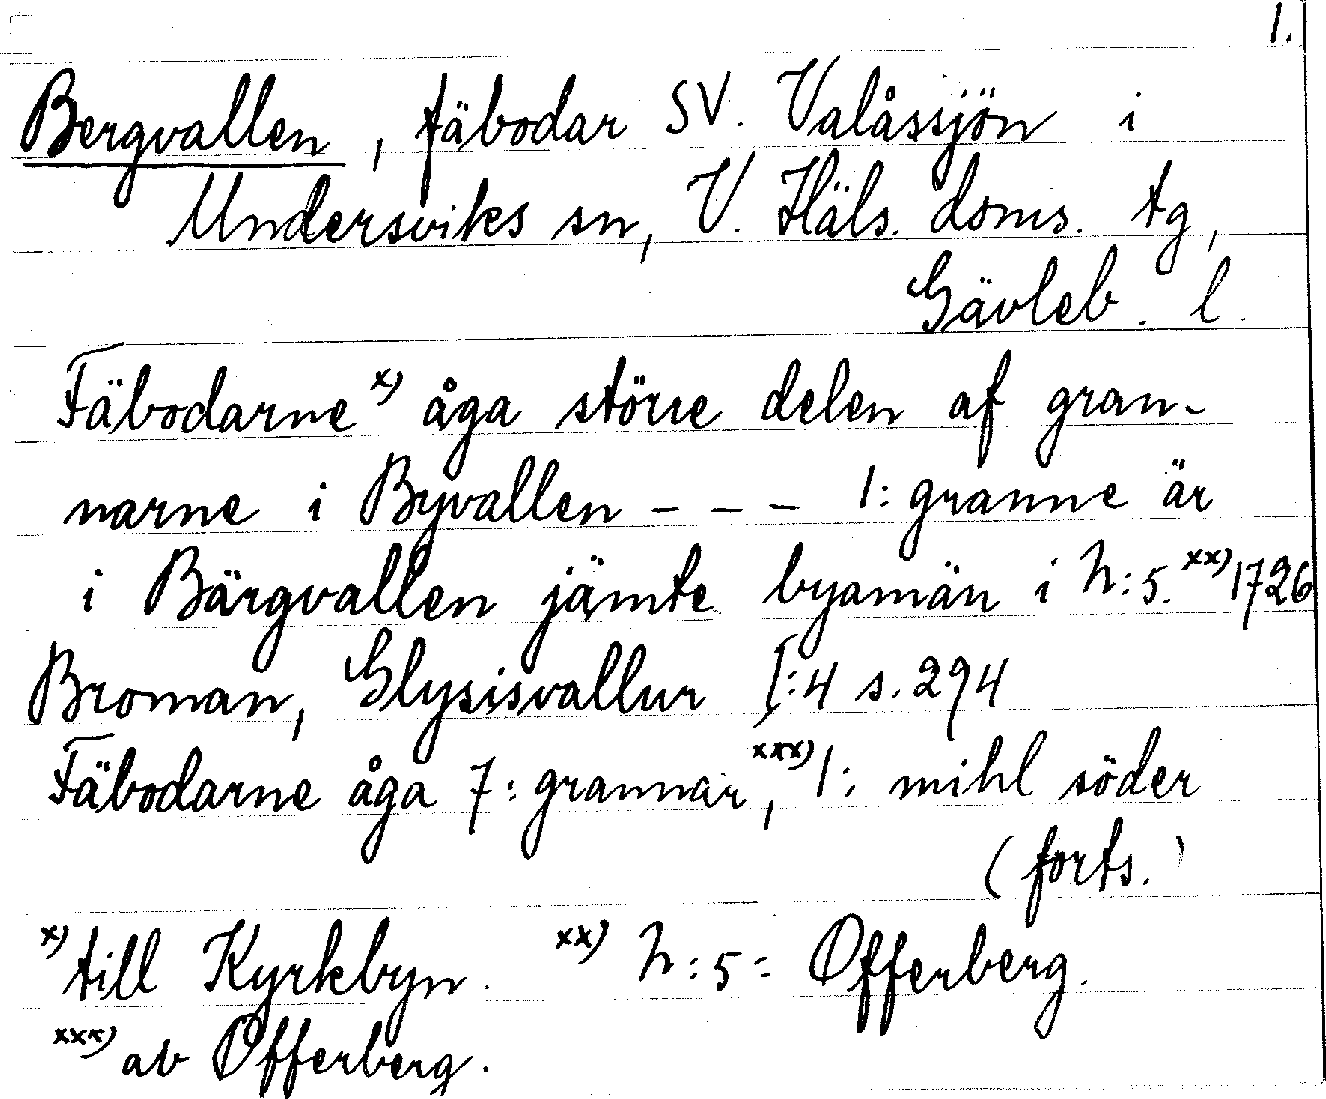 1.
Bergvallen, fäbodar SV. Valåssjön i
Undersviks sn, V. Häls. doms. tg,
Gävleb. l.
Fäbodarne x) åga större delen af gran-
narne i Byvallen - - - 1: granne är
i Bärgvallen jämte byamän i N:5. xx) 1726
Broman, Glysisvallur I:4 s. 294
Fäbodarne åga 7: grannar, xxx) 1: mihl söder
(forts.)
x) till Kyrkbyn. xx) N:5 = Offerberg.
xxx) av Offerberg.